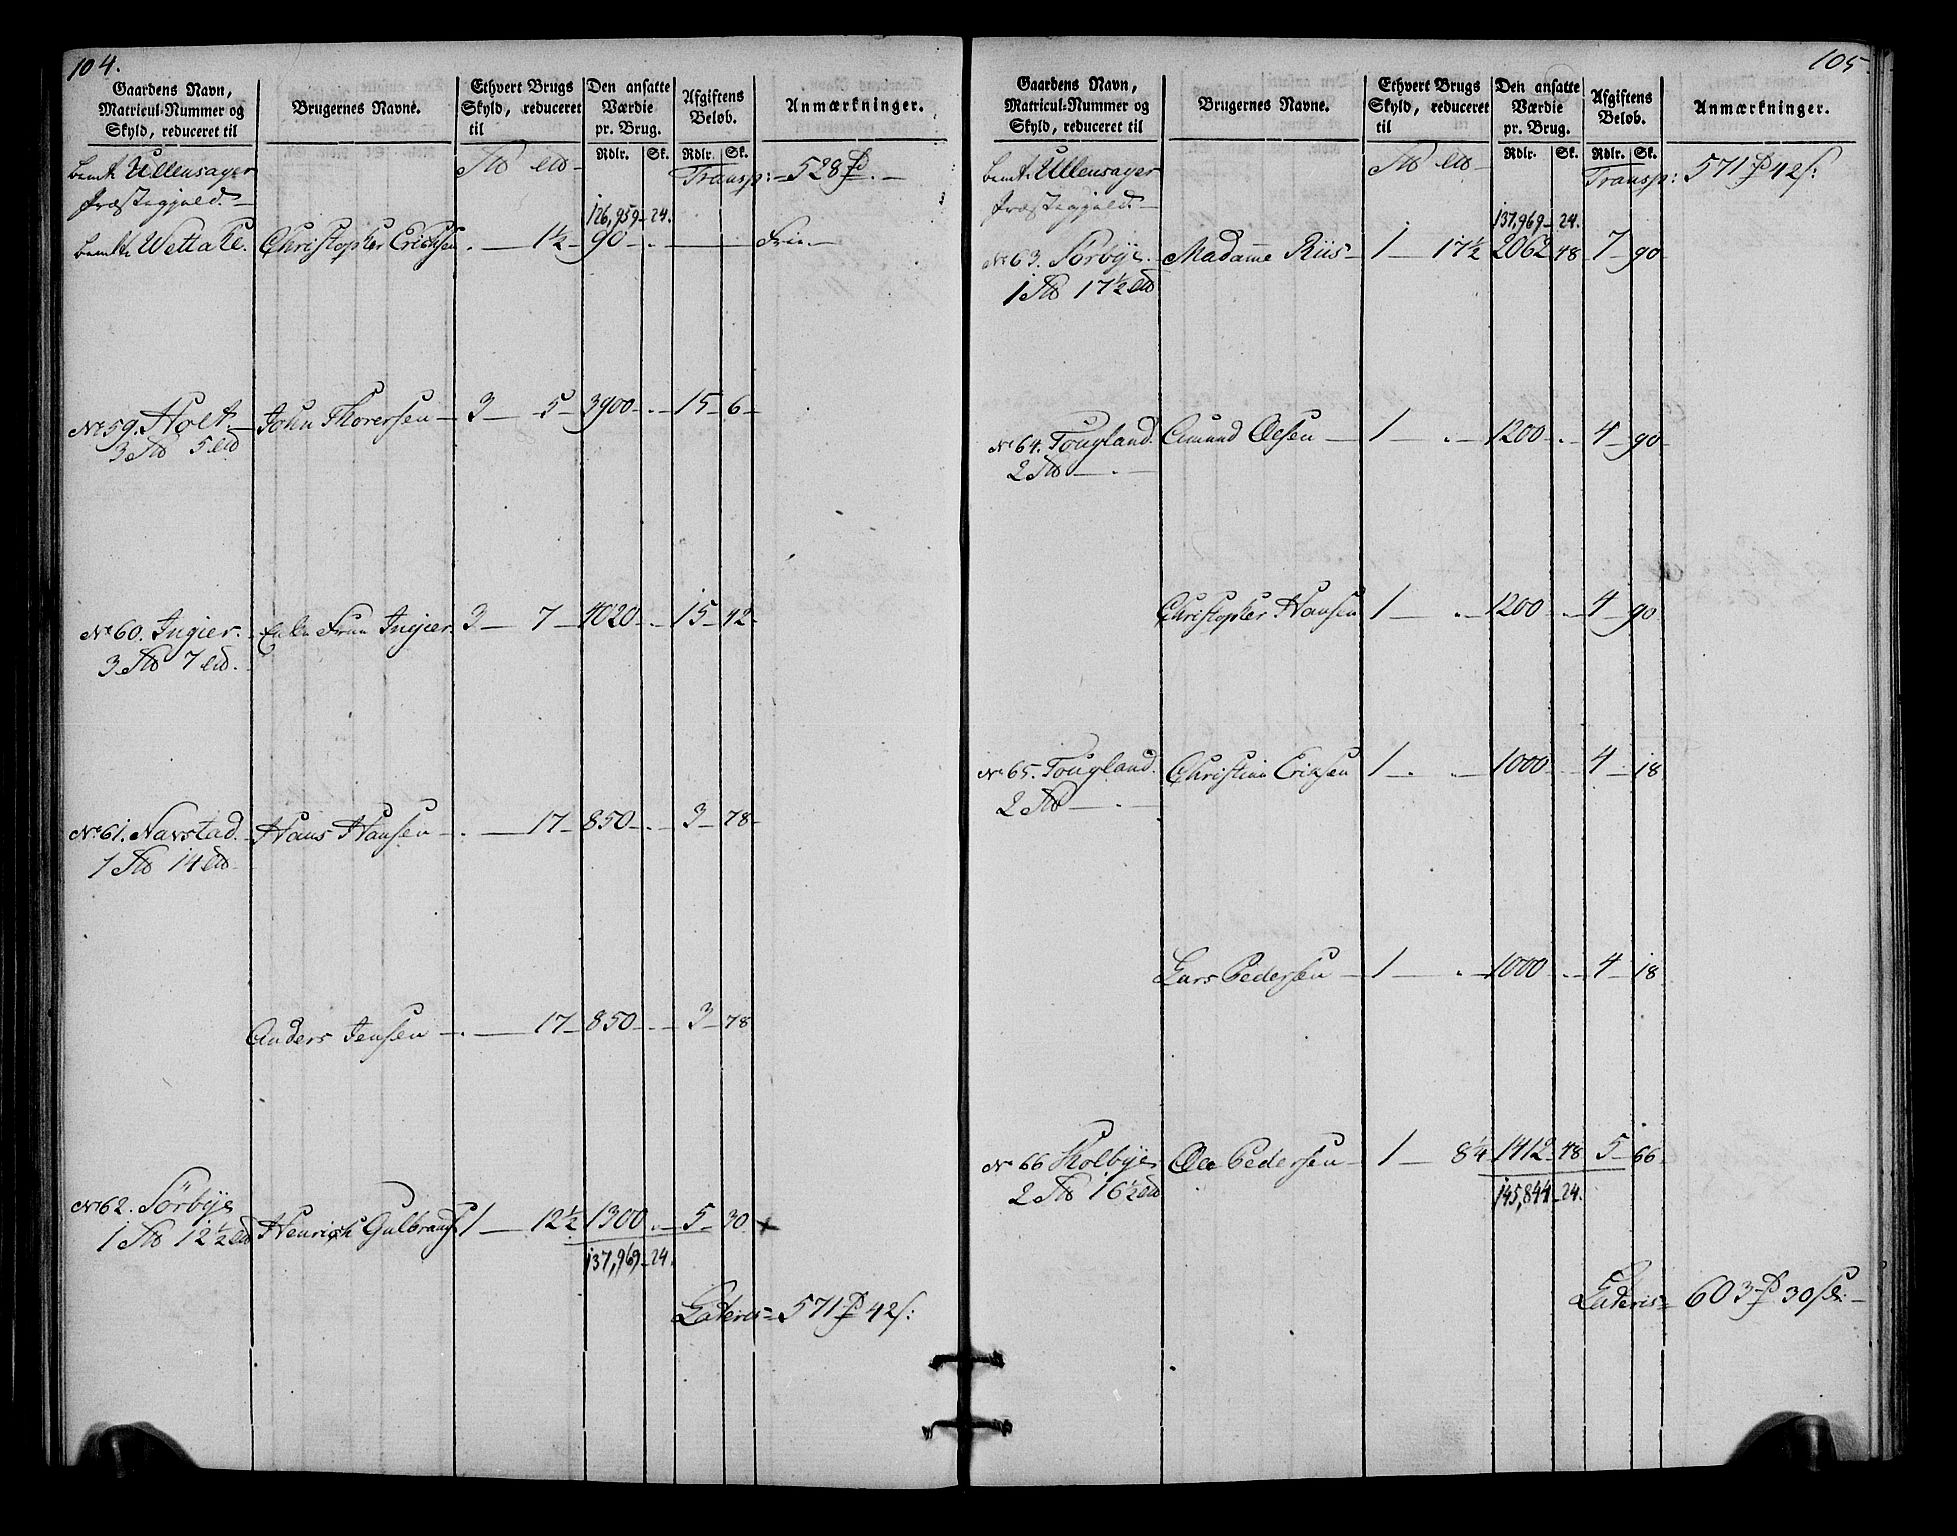 104.
Gaardens Navn, Matricul-Nummer og Skyld, reduceret til
Brugernes Navne.
Ethvert Brugs Skyld, reduceret til
Den ansatte Værdie pr. Brug.
Afgiftens Beløb.
Anmærkninger.
Rdlr. Sk. Rdlr. Sk.
bemte Ullensager
Præstegjeld.
Transp: 528
126,959 - 24.
bemte Wettahl. Christopher Erichsen . 1½ 90 - . Frie
No 59. Holt. John Thorersen 3 5 3900 - . - 15 - 6
3 5
No 60. Ingier. Fru Ingier. 3 7 4020 - . 15 - 42
3 7
No 61. Navstad. Hans Hansen . 17 850 - . 3 - 78
1 14
Anders Jensen . 17 850 - . 3 - 78
No 62. Sörbye
1 12½ Henrich Gulbrands 1 12½ 1300 . 5 - 30 +
137,969 - 24.
Lateris = 571 42 s:
105.
Gaardens Navn, Matricul-Nummer og Skyld, reduceret til
Brugernes Navne.
Ethvert Brugs Skyld, reduceret til
Den ansatte Værdie pr. Brug.
Afgiftens Beløb.
Anmærkninger.
Rdlr. Sk. Rdlr. Sk.
bemte Ullensager
Præstegjeld.
Transp: 571 42 s:
137,969 - 24.
No 63. Sörbye. Madame Riis 1 17½ 2062 48 7 - 90
1 17½
No 64. Tougland. Amund Olsen 1 . 1200 - . 4 - 90
2 .
Christopher Hansen 1 . 1200 - . 4 - 90
No 65. Tougland. Christian Eriksen 1 . 1000 - . 4 - 18
2 .
Lars Pedersen 1 . 1000 . 4 - 18
No 66 Kolbye Ole Pedersen 1 8¼ 1412 - 48 5 - 66
2 16½
145,844 - 24.
Lateris = 603 30 s: